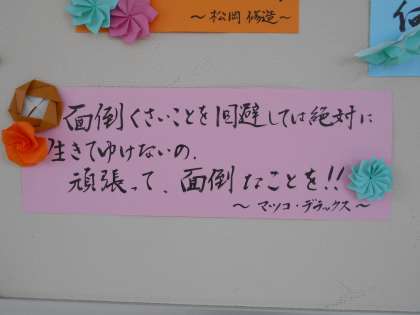 ～松岡修造～
何
面倒くさいことを回避しては絶対に
生きてゆけないの、
頑張って、面倒なことを!!
～マツコ・デラックス～